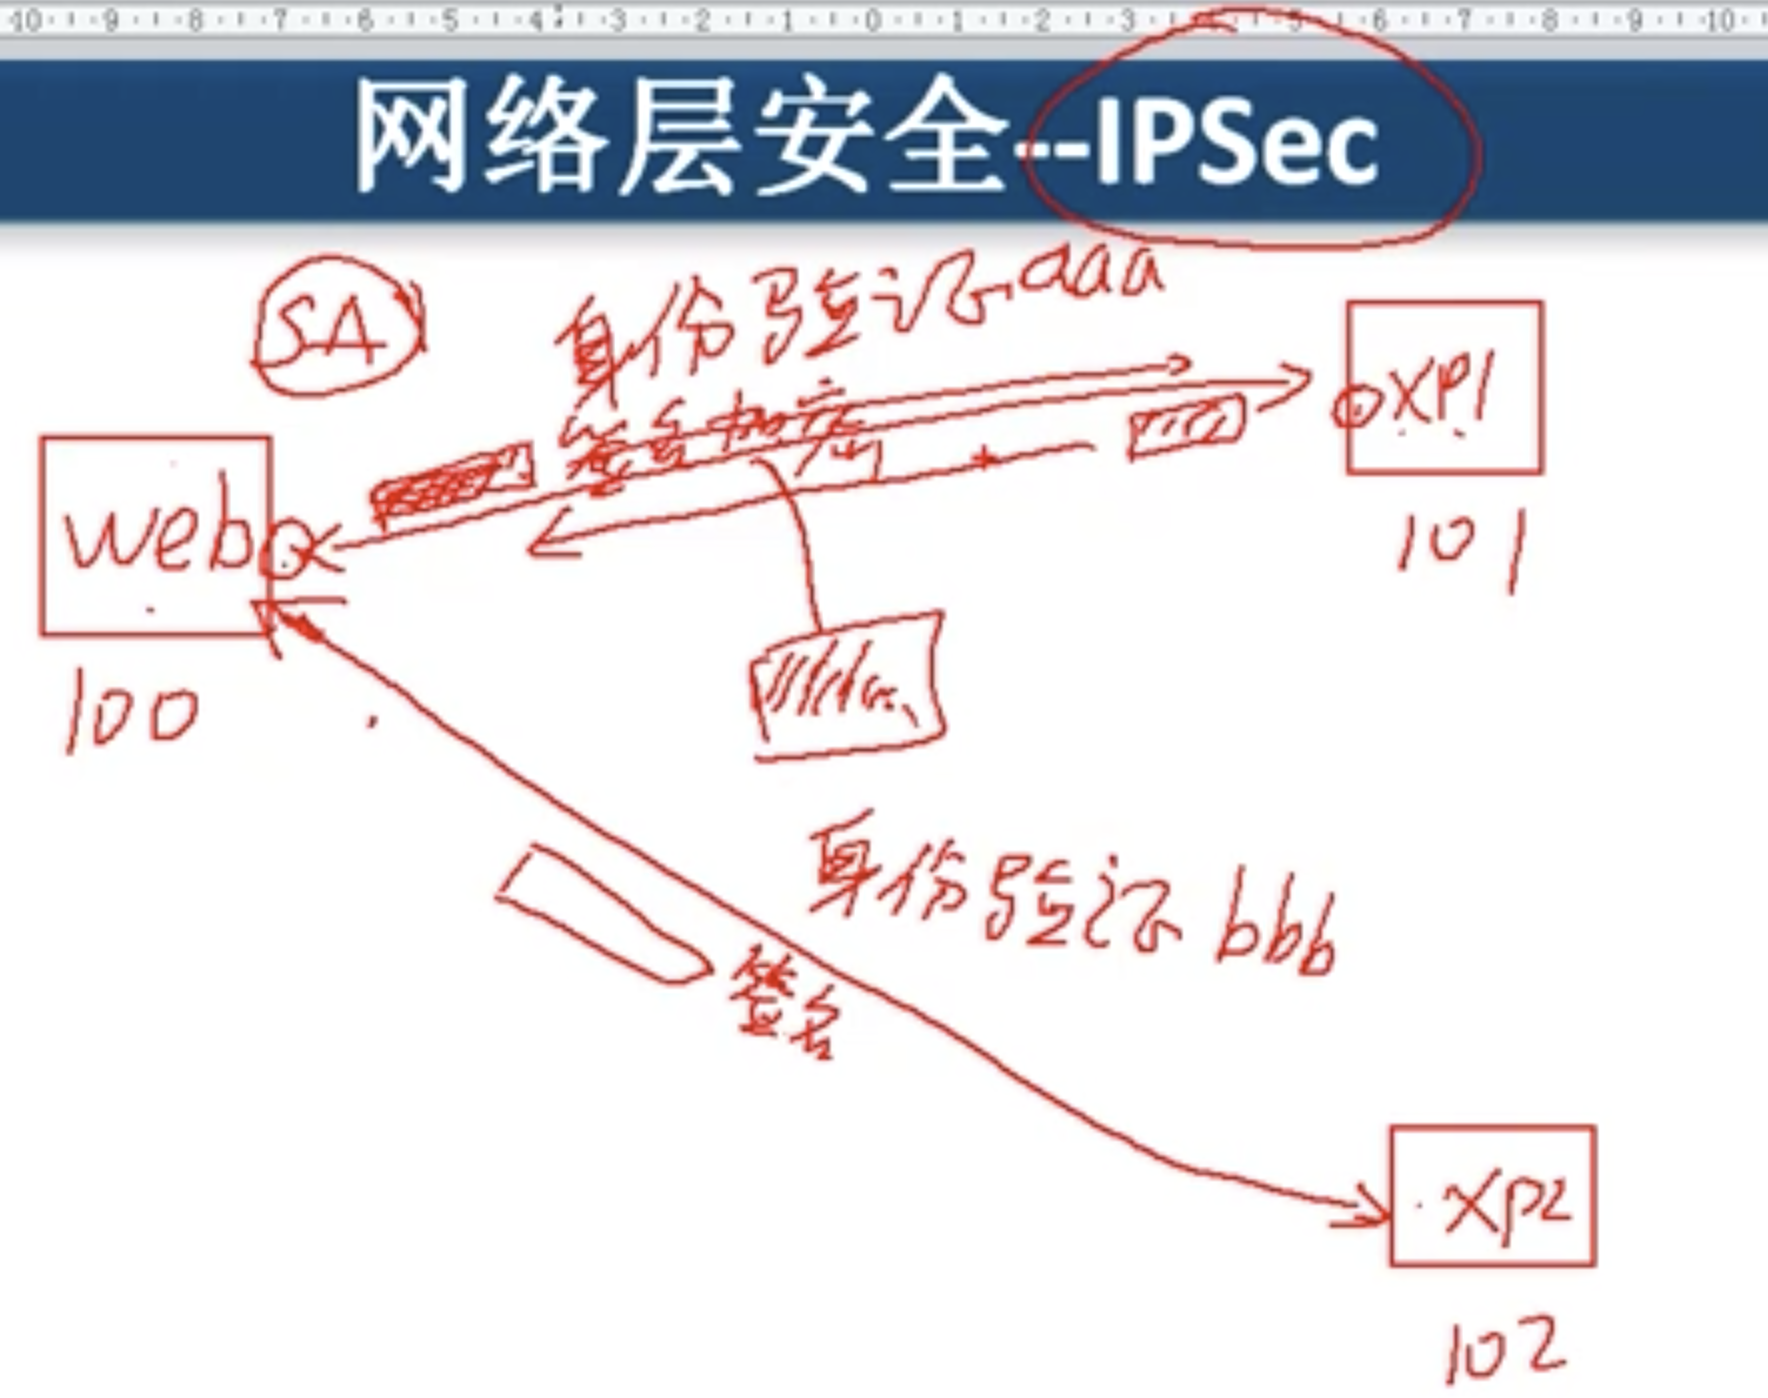 10 9 8 7 6 5 4 3 2 1 0 1 2 3 4 5 6 7 8 9 10
网络层安全--IPSec
SA
身份验证aaa
签名加密
XP1
web
101
100
身份验证 bbb
签名
XP2
102